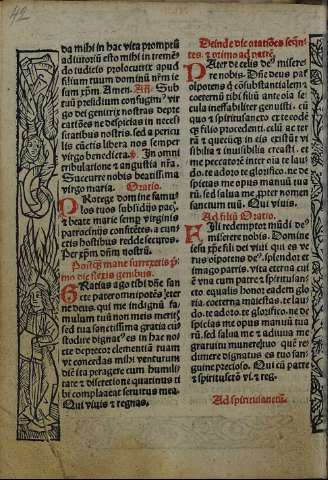 42
da mihi in hac vita promptū
adiutoriū esto mihi in tremē-
do iudicio prolocutrix apud
filium tuum dominū nr̄m ie
sum xp̄m. Amen. Añ. Sub
tuū presidium confugim⁹ vir
go dei genitrix nostras depre
catiōes ne despicias in necess
sitatibus nostris. sed a pericu
lis cūctis libera nos semper
virgo benedicta. v̄. In omni
tribulatione ⁊ angustia n̄ra.
Succurre nobis beatissima
virgo maria. Oratio.
Protege domine famu
los tuos subsidijs pacꝫ.
⁊ beate marie semp̄ virginis
patrocinijs confitētes. a cun-
ctis hostibus redde securos.
Per xp̄m dominū nostrū.
Postqꝫ mane surrexeris p̄-
mo dic flexis genibus.
Gratias ago tibi dn̄e san
cte pater omnipotēs ⁊eter
ne deus. qui me indignū fa-
mulum tuū non meis meritꝭ
sed tua sanctissima gratia cu-
stodire dignat⁹ es in hac noc
te deprecor clementiā tuam
vt concedas mihi venturum
diē ita peragere cum humili
tate ⁊ discretione quatinus ti
bi complaceat seruitus mea.
Qui viuis ⁊ regnas.
Deinde dic oratiōes seqn̄-
tes. ⁊ primo ad patrē.
Pater de celis de⁹ misere
re nobis. Dn̄e deus pat̄
oīpotens ⁊ cōsubstantialem ⁊
coeternū tibi filiū ante oīa se-
cula ineffabiliter genuisti. cū
quo ⁊ spiritusancto ex te eodēqꝫ
filio procedenti. celū ac ter
rā ⁊ quecūqꝫ in eis existūt vi
sibilia ⁊ inuisibilia creasti. ⁊
me peccatorē inter oīa te lau-
do. te adoro te glorifico. ne de
spicias me opus manuū tua
rū. sed salua me ꝓpter nomen
sanctum tuū. Qui viuis.
Ad filiū Oratio.
Fili redemptor mūdi de⁹
miserere nobis. Domine
iesu xp̄e fili dei viui qui es ve
rus oīpotens de⁹. splendor et
imago patris. vita eterna cui
ē vna cum patre ⁊ spiritusan-
cto equalis honor. eadem glo
ria. coeterna maiestas. te lau-
do. te adoro. te glorifico. ne de
spicias me opus manuū tua
rū. sed salua me ⁊ adiuua me
gratuitu munere tuo quē re-
dimere dignatus es tuo san-
guine precioso. Qui cū patre
⁊ spiritusctō vi. ⁊ reg.
Ad spiritusanctū.